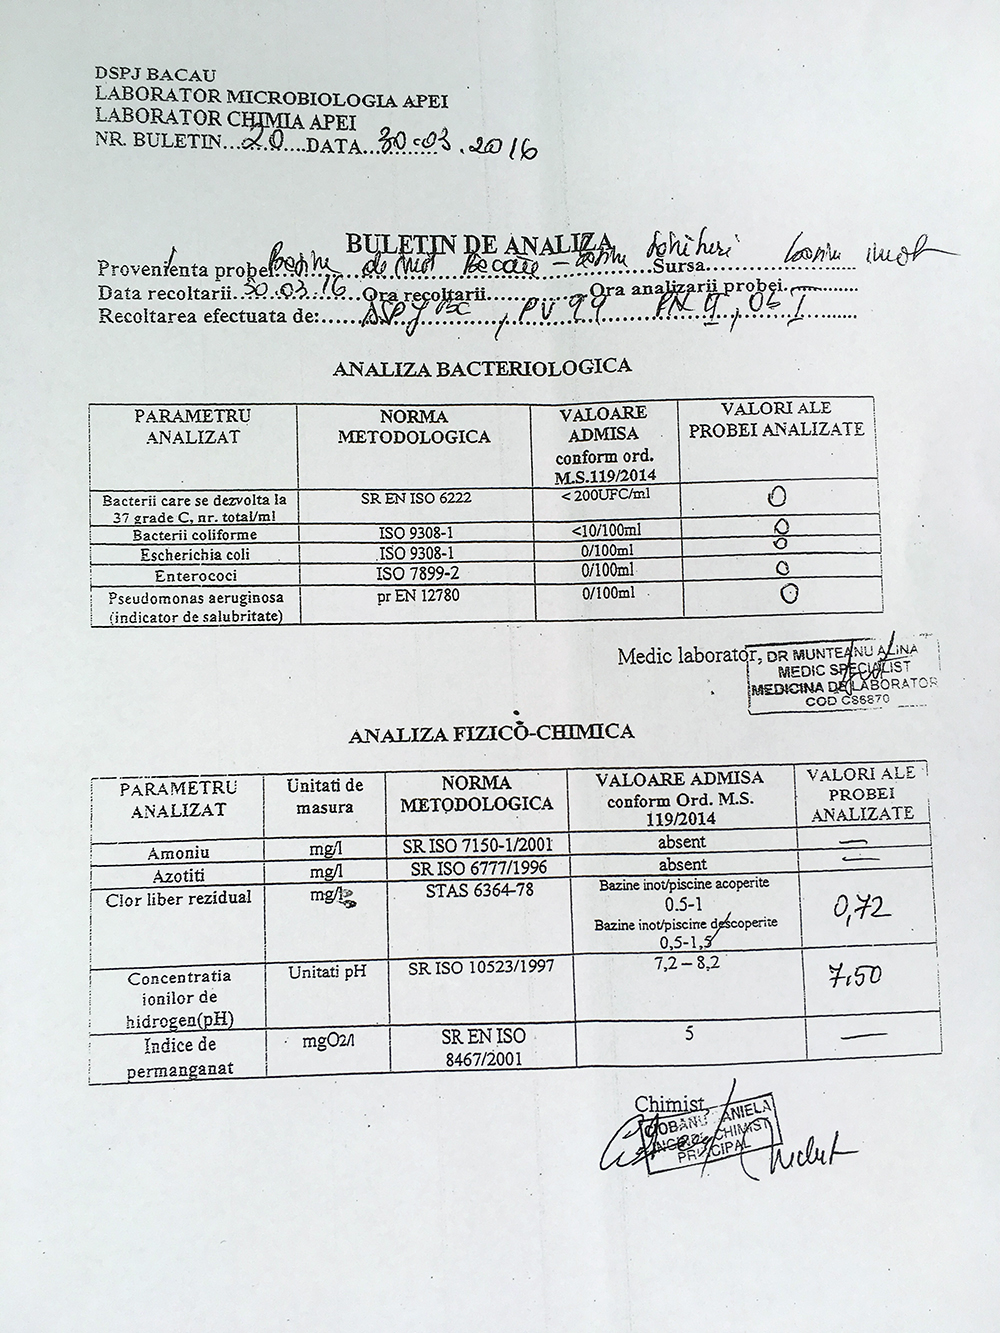 DSPJ BACAU
LABORATOR MICROBIOLOGIA APEI
LABORATOR CHIMIA APEI
NR. BULETIN...20....DATA...30.03.2016
BULETIN DE ANALIZA
Provenienta probei Bazin de inot Bacau - bazin Sursa... bazin inot
Data recoltarii..30.03.16..Ora recoltarii...............Ora analizarii probei.
Recoltarea efectuata de:......ASPJ BC, PV 99 PN II, Ob I
ANALIZA BACTERIOLOGICA
PARAMETRU ANALIZAT NORMA METODOLOGICA VALOARE ADMISA conform ord. M.S.119/2014 VALORI ALE PROBEI ANALIZATE
Bacterii care se dezvolta la 37 grade C, nr. total/ml SR EN ISO 6222 < 200UFC/ml 0
Bacterii coliforme ISO 9308-1 <10/100ml 0
Escherichia coli ISO 9308-1 0/100ml 0
Enterococi ISO 7899-2 0/100ml 0
Pseudomonas aeruginosa (indicator de salubritate) pr EN 12780 0/100ml 0
Medic laborator,
DR MUNTEANU ALINA
MEDIC SPECIALIST
MEDICINA DE LABORATOR
ANALIZA FIZICO-CHIMICA
PARAMETRU ANALIZAT Unitati de masura NORMA METODOLOGICA VALOARE ADMISA conform Ord. M.S. 119/2014 VALORI ALE PROBEI ANALIZATE
Amoniu mg/l SR ISO 7150-1/2001 absent —
Azotiti mg/l SR ISO 6777/1996 absent —
Clor liber rezidual mg/l STAS 6364-78 Bazine inot/piscine acoperite 0.5-1 Bazine inot/piscine descoperite 0,5-1,5 0,72
Concentratia ionilor de hidrogen(pH) Unitati pH SR ISO 10523/1997 7,2 – 8,2 7.50
Indice de permanganat mgO2/l SR EN ISO 8467/2001 5 —
Chimist,
CIOBANU DANIELA
CHIMIST
PRINCIPAL